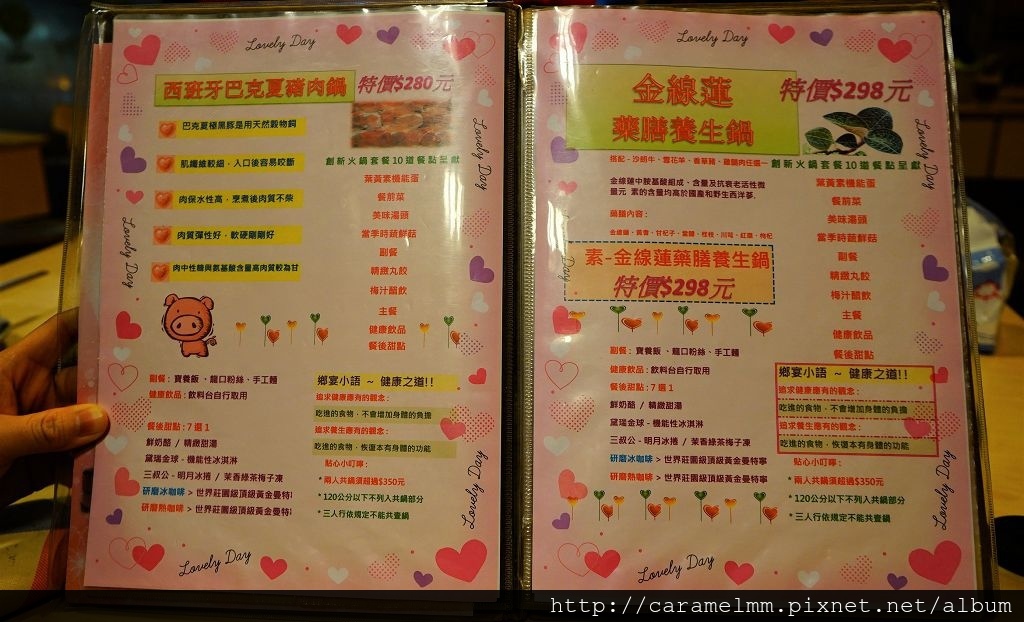 Lovely Day
西班牙巴克夏豬肉鍋 特價$280元
巴克夏極黑豚是用天然穀物飼
肌纖維較細，入口後容易咬斷
肉保水性高，烹煮後肉質不柴
肉質彈性好，軟硬剛剛好
肉中性糖與氨基酸含量高肉質較為甘
創新火鍋套餐10道餐點呈獻
葉黃素機能蛋
餐前菜
美味湯頭
當季時蔬鮮菇
副餐
精緻丸餃
梅汁醋飲
主餐
健康飲品
餐後甜點
Lovely Day
Lovely Day
副餐：寶養飯、龍口粉絲、手工麵
健康飲品：飲料台自行取用
餐後甜點：7選1
鮮奶酪 / 精緻甜湯
黛瑞金球 - 機能性冰淇淋
三叔公 - 明月冰捲 / 茉香綠茶梅子凍
研磨冰咖啡 > 世界莊園級頂級黃金曼特
研磨熱咖啡 > 世界莊園級頂級黃金曼特
鄉宴小語 ~ 健康之道!!
追求健康應有的觀念：
吃進的食物，不會增加身體的負擔
追求養生應有的觀念：
吃進的食物，恢復本有身體的功能
貼心小叮嚀：
*兩人共鍋須超過$350元
*120公分以下不列入共鍋部分
*三人行依規定不能共壹鍋
Lovely Day
Lovely Day
Lovely Day
金線蓮
藥膳養生鍋
特價$298元
搭配 - 沙朗牛、雪花羊、香草豬、雞腿肉任選一
創新火鍋套餐10道餐點呈獻
金線蓮中胺基酸組成、含量及抗衰老活性微
量元 素的含量均高於國產和野生西洋蔘.
藥膳內容：
金線蓮、黃耆、甘杞子、當歸、桂枝、川芎、紅棗、枸杞
素-金線蓮藥膳養生鍋
特價$298元
葉黃素機能蛋
餐前菜
美味湯頭
當季時蔬鮮菇
副餐
精緻丸餃
梅汁醋飲
主餐
健康飲品
餐後甜點
Lovely Day
副餐：寶養飯、龍口粉絲、手工麵
健康飲品：飲料台自行取用
餐後甜點：7選1
鮮奶酪 / 精緻甜湯
黛瑞金球 - 機能性冰淇淋
三叔公 - 明月冰捲 / 茉香綠茶梅子凍
研磨冰咖啡 > 世界莊園級頂級黃金曼特寧
研磨熱咖啡 > 世界莊園級頂級黃金曼特寧
鄉宴小語 ~ 健康之道!!
追求健康應有的觀念：
吃進的食物，不會增加身體的負擔
追求養生應有的觀念：
吃進的食物，恢復本有身體的功能
貼心小叮嚀：
*兩人共鍋須超過$350元
*120公分以下不列入共鍋部分
*三人行依規定不能共壹鍋
Lovely Day
Lovely Day
http://caramelmm.pixnet.net/album